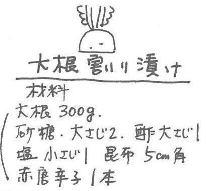 大根割り漬け
材料
大根 300g.
砂糖・大さじ2. 酢大さじ1
塩 小さじ1 昆布 5cm角
赤唐辛子 1本